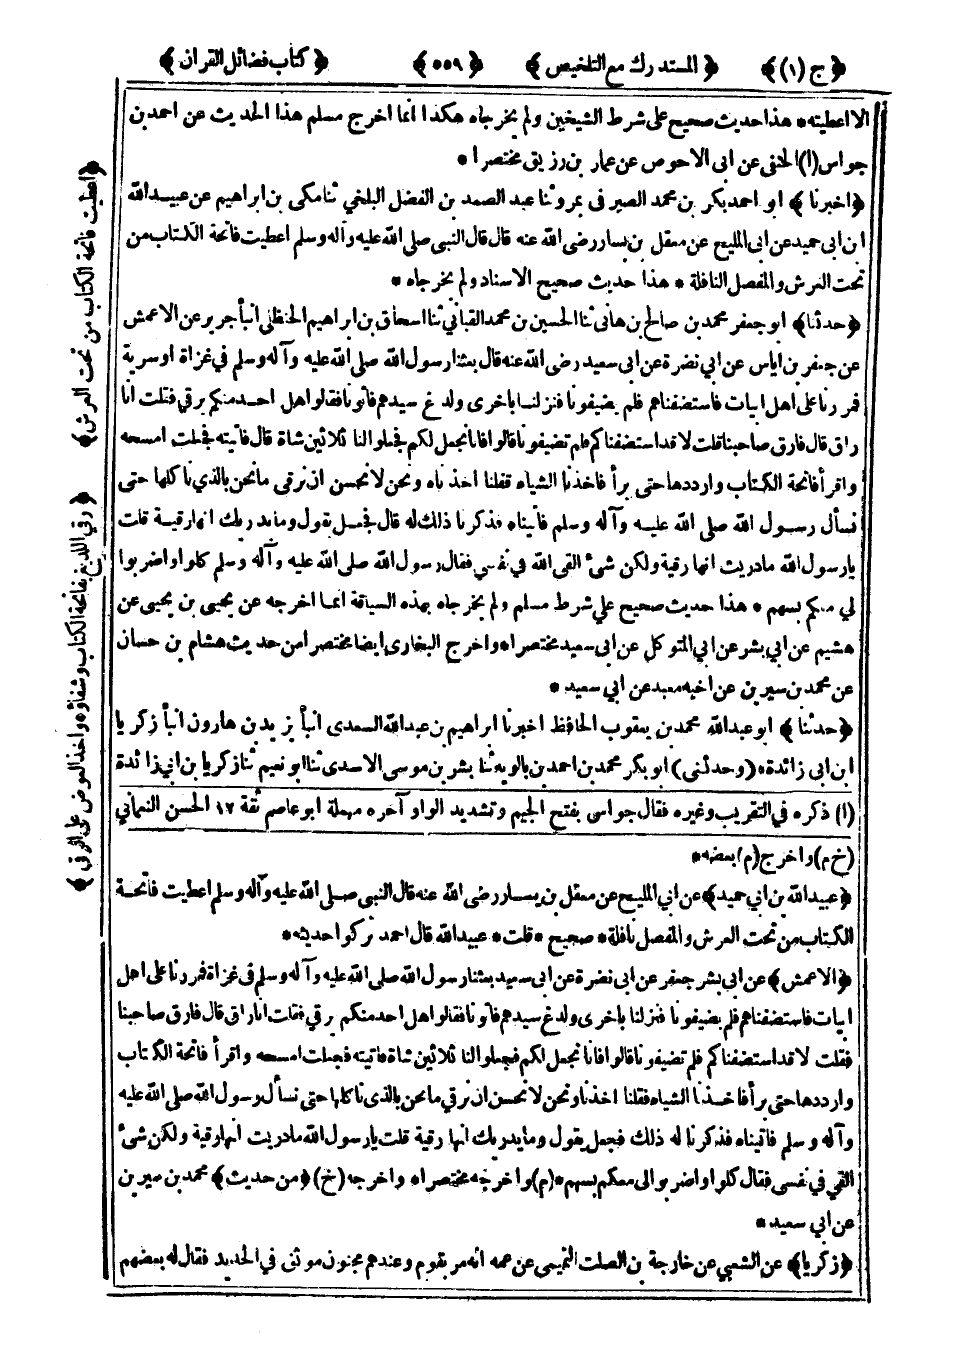 ﴿ ج (١) ﴾ ﴿ المستدرك مع التلخيص ﴾ ﴿ ٥٥٩ ﴾ ﴿ كتاب فضائل القران ﴾
الا اعطيته * هذا حديث صحيح على شرط الشيخين ولم يخرجاه هكذا انما اخرج مسلم هذا الحديث عن احمد بن
جواس (١) الحنفى عن ابى الاحوص عن عمار بن رزيق مختصرا *
﴿ اخبرنا ﴾ ابو احمد بكر بن محمد الصيرفى بمرو ثنا عبد الصمد بن الفضل البلخي ثنا مكى بن ابراهيم عن عبيد الله
ابن ابى حميد عن ابى المليح عن معقل بن يسار رضى الله عنه قال قال النبى صلى الله عليه وآله وسلم اعطيت فاتحة الكتاب من
تحت العرش والمفصل النافلة * هذا حديث صحيح الاسناد ولم يخرجاه *
﴿ حدثنا ﴾ ابو جعفر محمد بن صالح بن هانى ثنا الحسين بن محمد القباني ثنا اسحاق بن ابراهيم الحنظلى انبأ جرير عن الاعمش
عن جعفر بن اياس عن ابي نضرة عن ابى سعيد رضى الله عنه قال بعثنا رسول الله صلى الله عليه وآله وسلم في غزاة او سرية
فمررنا على اهل ابيات فاستضفناهم فلم يضيفونا فنزلنا باخرى ولدغ سيدهم فاتونا فقالوا هل احد منكم يرقي فقلت انا
راق قال فارق صاحبنا قلت لا قد استضفناكم فلم تضيفونا قالوا فانا نجعل لكم فجعلوا لنا ثلاثين شاة قال فاتيته فجعلت امسحه
واقرأ فاتحة الكتاب وارددها حتى برأ فاخذنا الشياه فقلنا اخذناه ونحن لا نحسن ان نرقى ما نحن بالذي ناكلها حتى
نسأل رسول الله صلى الله عليه وآله وسلم فاتيناه فذكرنا ذلك له قال فجعل يقول وما يدريك انها رقية قلت
يا رسول الله ما دريت انها رقية ولكن شئ القى الله في نفسي فقال رسول الله صلى الله عليه وآله وسلم كلوا واضربوا
لي معكم بسهم * هذا حديث صحيح على شرط مسلم ولم يخرجاه بهذه السياقة انما اخرجه عن يحيى بن يحيى عن
هشيم عن ابي بشر عن ابي المتوكل عن ابى سعيد مختصرا * واخرج البخارى ايضا مختصرا من حديث هشام بن حسان
عن محمد بن سيرين عن اخيه معبد عن ابي سعيد *
﴿ حدثنا ﴾ ابو عبد الله محمد بن يعقوب الحافظ اخبرنا ابراهيم بن عبد الله السعدى انبأ يزيد بن هارون انبأ زكريا
ابن ابى زائدة * (وحدثنى) ابو بكر محمد بن احمد بن بالويه ثنا بشر بن موسى الاسدى ثنا ابو نعيم ثنا زكريا بن ابي زائدة
(١) ذكره في التقريب وغيره فقال جواس بفتح الجيم وتشديد الواو آخره مهملة ابو عاصم ثقة ١٢ الحسن النعمانى
(خ م) واخرج (م) بعضه *
﴿ عبيد الله بن ابي حميد ﴾ عن ابي المليح عن معقل بن يسار رضى الله عنه قال النبى صلى الله عليه وآله وسلم اعطيت فاتحة
الكتاب من تحت العرش والمفصل نافلة * صحيح * قلت * عبيد الله قال احمد تركوا حديثه *
﴿ الاعمش ﴾ عن ابي بشر جعفر عن ابى نضرة عن ابى سعيد بعثنا رسول الله صلى الله عليه وآله وسلم فى غزاة فمررنا على اهل
ابيات فاستضفناهم فلم يضيفونا فنزلنا باخرى ولدغ سيدهم فاتونا فقالوا هل احد منكم يرقي فقلت انا راق قال فارق صاحبنا
فقلت لا قد استضفناكم فلم تضيفونا قالوا فانا نجعل لكم فجعلوا لنا ثلاثين شاة فاتيته فجعلت امسحه واقرأ فاتحة الكتاب
وارددها حتى برأ فاخذنا الشياه فقلنا اخذنا ونحن لا نحسن ان نرقي ما نحن بالذى ناكلها حتى نسأل رسول الله صلى الله عليه
وآله وسلم فاتيناه فذكرنا له ذلك فجعل يقول وما يدريك انها رقية قلت يا رسول الله ما دريت انها رقية ولكن شئ
القي في نفسى فقال كلوا واضربوا لى معكم بسهم * (م) واخرجه مختصرا * واخرجه (خ) ﴿ من حديث ﴾ محمد بن سيرين
عن ابي سعيد *
﴿ زكريا ﴾ عن الشعبي عن خارجة بن الصلت التميمى عن عمه انه مر بقوم وعندهم مجنون موثق في الحديد فقال له بعضهم
﴿ اعطيت فاتحة الكتاب من تحت العرش ﴾
﴿ رقي اللديغ بفاتحة الكتاب وشفاؤه واخذ العوض على الرقي ﴾